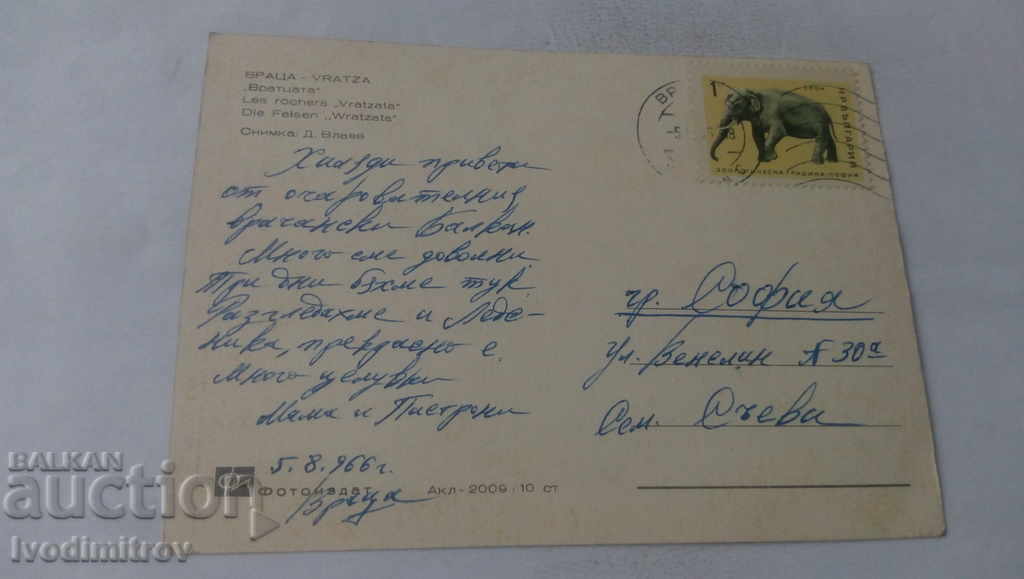 ВРАЦА - VRATZA
„Вратцата"
Les rochers „Vratzata"
Die Felsen „Wratzata"
Снимка: Д. Влаев
Хиляди привети
от очарователния
врачански Балкан.
Много сме доволни.
Три дни бяхме тук.
Разгледахме и Леде-
ника, прекрасно е.
Много целувки
Мама и
5.8.966 г.
Враца
Фотоиздат
Акл-2009 · 10 ст
1
НР БЪЛГАРИЯ
ЗООЛОГИЧЕСКА ГРАДИНА-СОФИЯ
гр. София
ул. Венелин № 30а
Сем. Съеви
BALKAN
auction
Ivodimitrov